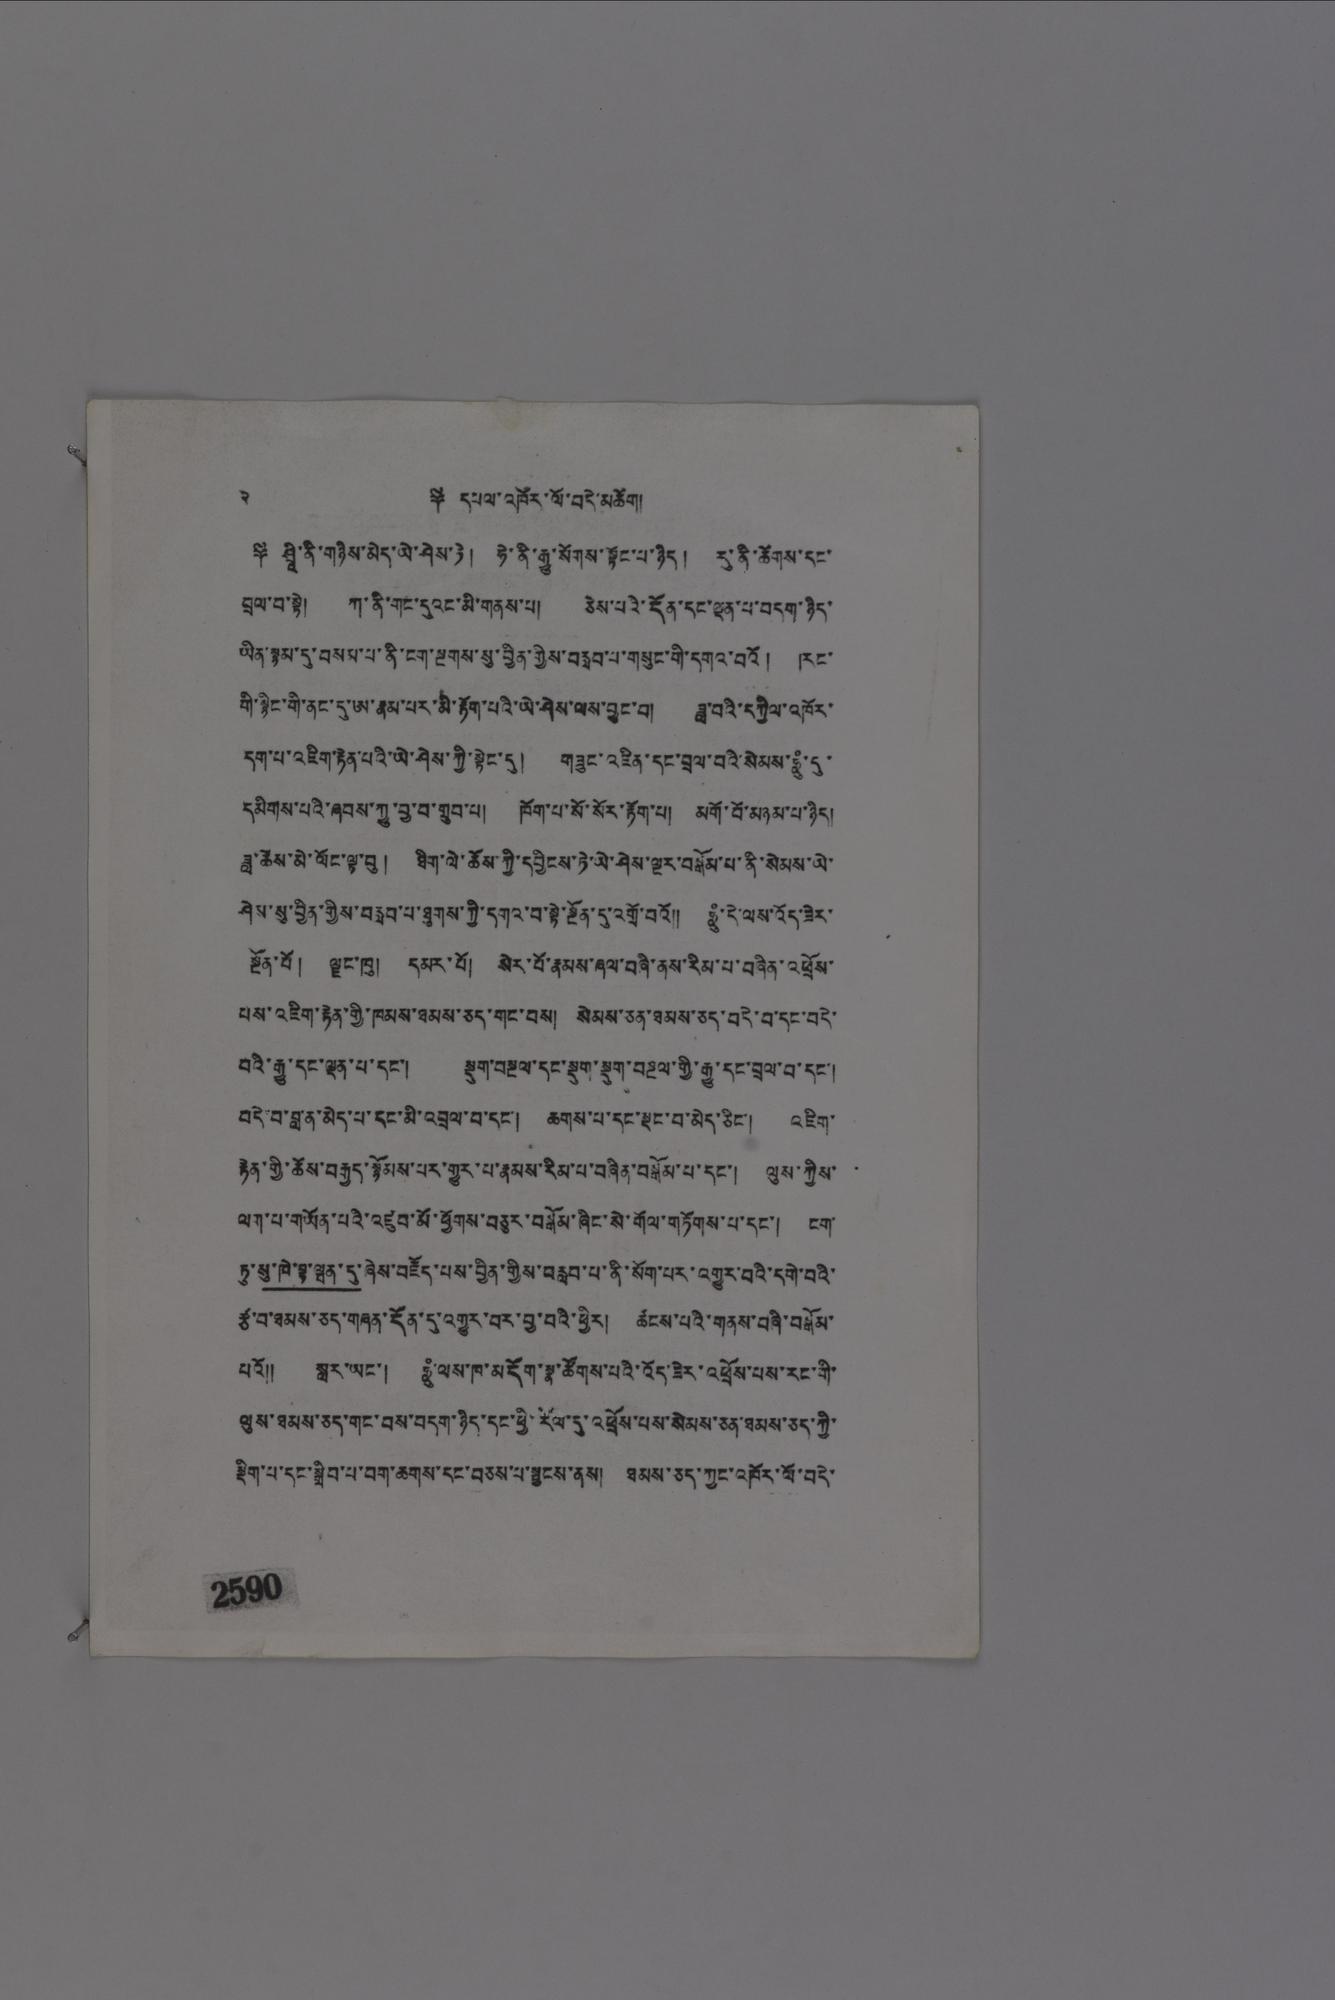 ༢ ༄ དཔལ་འཁོར་ལོ་བདེ་མཆོག།
༄ ཤྲཱི་ནི་གཉིས་མེད་ཡེ་ཤེས་ཏེ། ཧེ་ནི་རྒྱུ་སོགས་སྟོང་པ་ཉིད། རུ་ནི་ཚོགས་དང་
བྲལ་བ་སྟེ། ཀ་ནི་གང་དུའང་མི་གནས་པ། ཅེས་པའི་དོན་དང་ལྡན་པ་བདག་ཉིད་
ཡིན་སྙམ་དུ་བསམ་པ་ནི་ངག་སྔགས་སུ་བྱིན་གྱིས་བརླབ་པ་གསུང་གི་དགའ་བའོ། །རང་
གི་སྙིང་གི་ནང་དུ་ཨ་རྣམ་པར་མི་རྟོག་པའི་ཡེ་ཤེས་ལས་བྱུང་བ། ཟླ་བའི་དཀྱིལ་འཁོར་
དག་པ་འཇིག་རྟེན་པའི་ཡེ་ཤེས་ཀྱི་སྟེང་དུ། གཟུང་འཛིན་དང་བྲལ་བའི་སེམས་ཧཱུྃ་དུ་
དམིགས་པའི་ཞབས་ཀྱུ་བྱ་བ་གྲུབ་པ། ཁོག་པ་སོ་སོར་རྟོག་པ། མགོ་བོ་མཉམ་པ་ཉིད།
ཟླ་ཚེས་མེ་ལོང་ལྟ་བུ། ཐིག་ལེ་ཆོས་ཀྱི་དབྱིངས་ཏེ་ཡེ་ཤེས་ལྔར་བསྒོམ་པ་ནི་སེམས་ཡེ་
ཤེས་སུ་བྱིན་གྱིས་བརླབ་པ་ཐུགས་ཀྱི་དགའ་བ་སྟེ་སྔོན་དུ་འགྲོ་བའོ།། ཧཱུྃ་དེ་ལས་འོད་ཟེར་
སྔོན་པོ། ལྗང་ཁུ། དམར་པོ། སེར་པོ་རྣམས་ཞལ་བཞི་ནས་རིམ་པ་བཞིན་འཕྲོས་
པས་འཇིག་རྟེན་གྱི་ཁམས་ཐམས་ཅད་གང་བས། སེམས་ཅན་ཐམས་ཅད་བདེ་བ་དང་བདེ་
བའི་རྒྱུ་དང་ལྡན་པ་དང་། སྡུག་བསྔལ་དང་སྡུག་སྡུག་བསྔལ་གྱི་རྒྱུ་དང་བྲལ་བ་དང་།
བདེ་བ་བླ་ན་མེད་པ་དང་མི་འབྲལ་བ་དང་། ཆགས་པ་དང་སྡང་བ་མེད་ཅིང་། འཇིག་
རྟེན་གྱི་ཆོས་བརྒྱད་སྙོམས་པར་གྱུར་པ་རྣམས་རིམ་པ་བཞིན་བསྒོམ་པ་དང་། ལུས་ཀྱིས་
ལག་པ་གཡོན་པའི་འཛུབ་མོ་ཕྱོགས་བཅུར་བསྒོམ་ཞིང་སེ་གོལ་གཏོགས་པ་དང་། ངག་
ཏུ་སུ་ཁེ་བྷ་ལྷན་དུ་ཞེས་བརྗོད་པས་བྱིན་གྱིས་བརླབ་པ་ནི་སོག་པར་འགྱུར་བའི་དགེ་བའི་
རྩ་བ་ཐམས་ཅད་གཞན་དོན་དུ་འགྱུར་བར་བྱ་བའི་ཕྱིར། ཚངས་པའི་གནས་བཞི་བསྒོམ་
པའོ།། སླར་ཡང་། ཧཱུྃ་ལས་ཁ་མདོག་སྣ་ཚོགས་པའི་འོད་ཟེར་འཕྲོས་པས་རང་གི་
ལུས་ཐམས་ཅད་གང་བས་བདག་ཉིད་དང་ཕྱི་རོལ་དུ་འཕྲོས་པས་སེམས་ཅན་ཐམས་ཅད་ཀྱི་
སྡིག་པ་དང་སྒྲིབ་པ་བག་ཆགས་དང་བཅས་པ་སྦྱངས་ནས། ཐམས་ཅད་ཀྱང་འཁོར་ལོ་བདེ་
2590